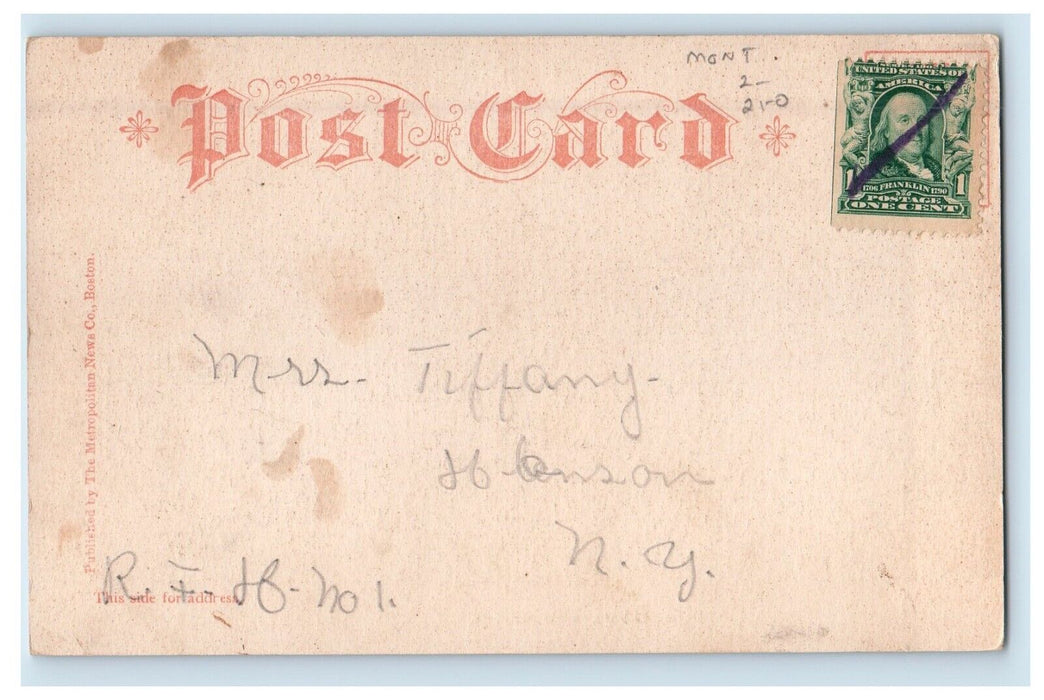 MONT..
2-
21-0
Post Card
UNITED STATES OF
AMERICA
1 1706 FRANKLIN 1790 1
POSTAGE
ONE CENT
Published by The Metropolitan News Co., Boston.
Mrs. Tiffany.
N. Y.
This side for address.
R. F. No 1.